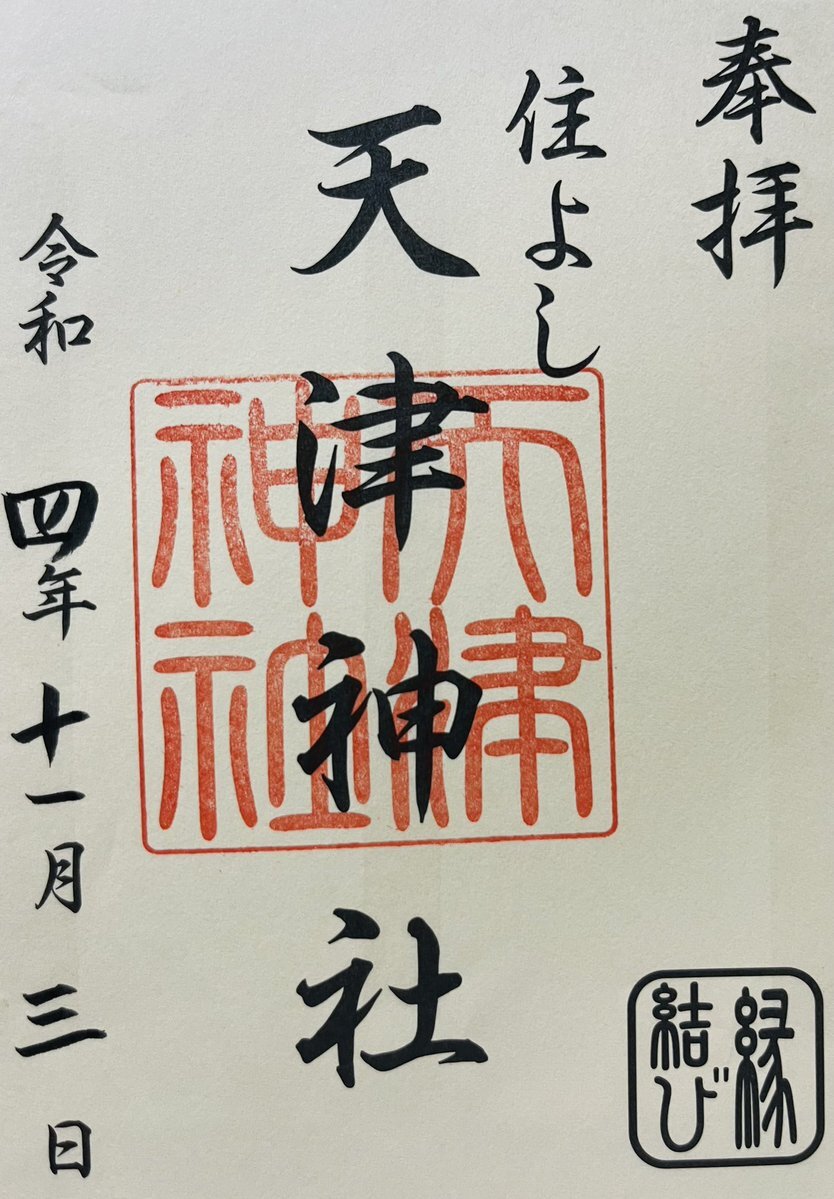 奉拝
住よし
天津神社
天津神社
令和四年十一月三日
縁結び